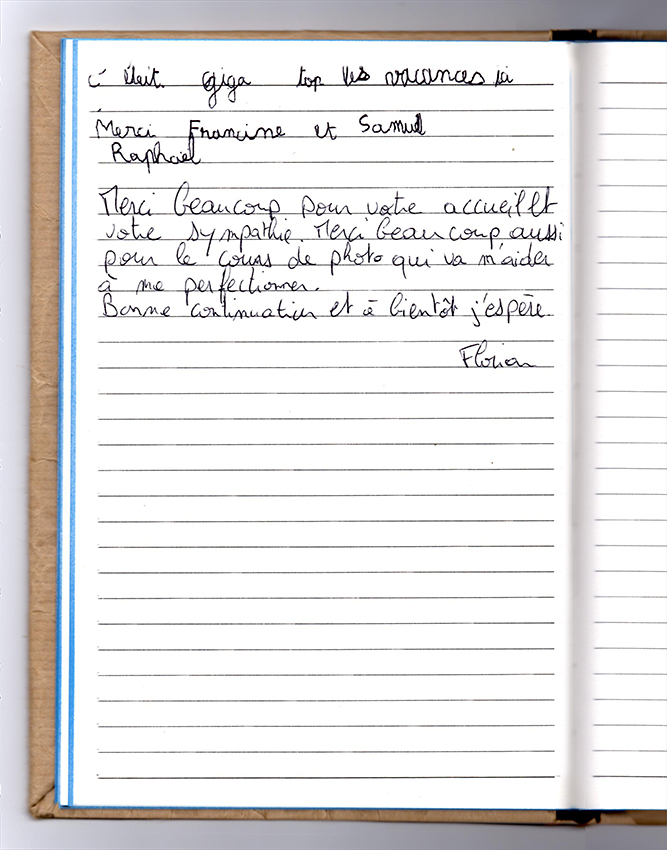 c'était giga top les vacances ici
Merci Francine et Samuel
Raphaël
Merci beaucoup pour votre accueil et
votre sympathie. Merci beaucoup aussi
pour le cours de photo qui va m'aider
à me perfectionner.
Bonne continuation et à bientôt j'espère.
Florian